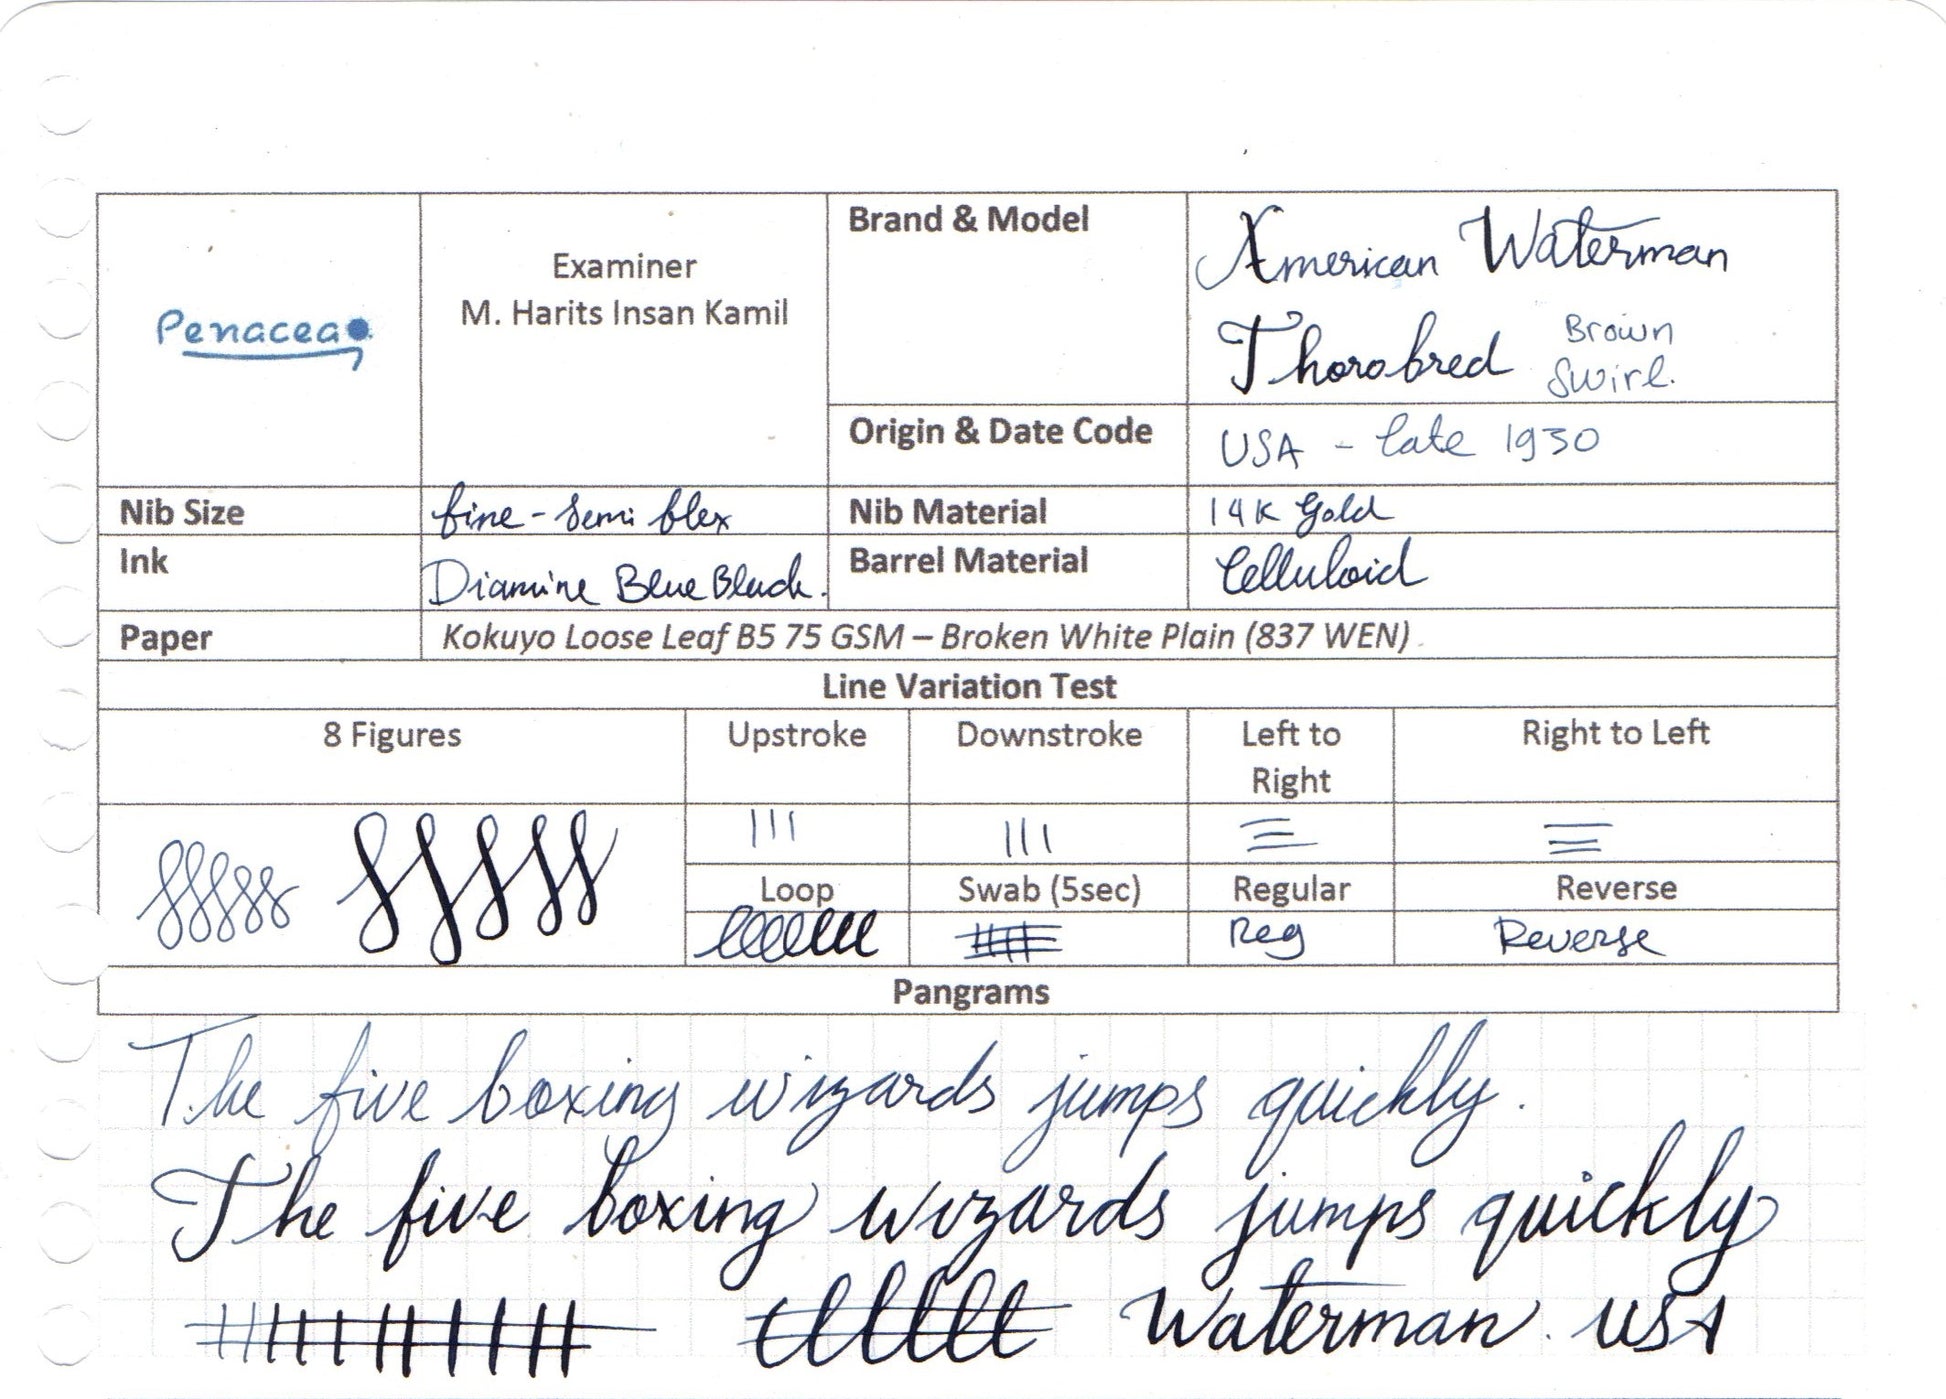 Penacea
Examiner
M. Harits Insan Kamil
Brand & Model
American Waterman
Thorobred Brown
Swirl.
Origin & Date Code
USA - late 1930
Nib Size
fine - semi flex
Nib Material
14K Gold
Ink
Diamine Blue Black.
Barrel Material
Celluloid
Paper
Kokuyo Loose Leaf B5 75 GSM – Broken White Plain (837 WEN)
Line Variation Test
8 Figures
Upstroke
Downstroke
Left to
Right
Right to Left
Loop
Swab (5sec)
Regular
Reverse
Reg
Reverse
Pangrams
The five boxing wizards jumps quickly.
The five boxing wizards jumps quickly
Waterman. USA